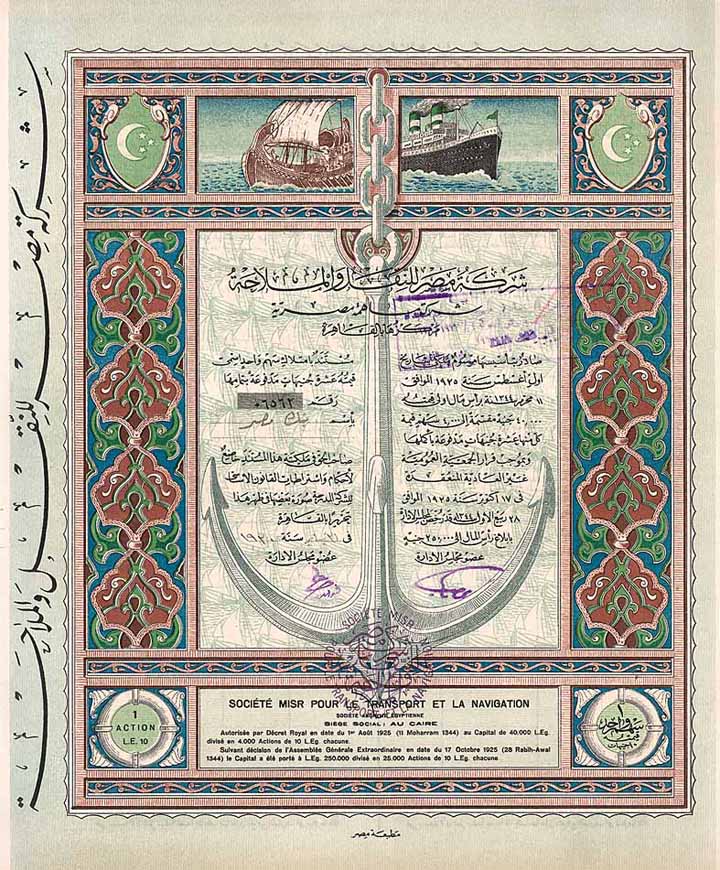 شركة مصر للنقل والملاحة
شركة مصر للنقل والملاحة
شركة مساهمة مصرية
مركزها بالقاهرة
صادرت بتأسيسها مرسوم ملكي بتاريخ
اول أغسطس سنة ١٩٢٥ الموافق
١١ محرم سنة ١٣٤٤ رأس مال أولى قدره
٤٠٠٠٠ جنيه مقسمة الى ٤٠٠٠ سهم قيمة
كل منها عشرة جنيهات مدفوعة بأكملها
وبموجب قرار الجمعية العمومية
غير العادية المنعقدة
فى ١٧ أكتوبر سنة ١٩٢٥ الموافق
٢٨ ربيع الاول ١٣٤٤ قد رخص لمجلس الإدارة
بابلاغ رأس المال الى ٢٥٠٠٠٠ جنيه
عضو مجلس الادارة
سند بامتلاك سهم واحد اسمى
قيمته عشرة جنيهات مدفوعة بتمامها
رقم ٠٦٥٦٢
باسم بنك مصر
صاحب الحق فى ملكية هذا السند خاضع
لأحكام واشتراطات القانون
للشركة المدرجة صورة بعضها فى ظهر هذا
تحريرا بالقاهرة
فى سنة ١٩٢
عضو مجلس الادارة
SOCIÉTÉ MISR
1
ACTION
L.E. 10
SOCIÉTÉ MISR POUR LE TRANSPORT ET LA NAVIGATION
SOCIÉTÉ ANONYME ÉGYPTIENNE
SIÈGE SOCIAL: AU CAIRE
Autorisée par Décret Royal en date du 1er Août 1925 (11 Moharram 1344) au Capital de 40.000 L.Eg.
divisé en 4.000 Actions de 10 L.Eg. chacune.
Suivant décision de l'Assemblée Générale Extraordinaire en date du 17 Octobre 1925 (28 Rabih-Awal
1344) le Capital a été porté à L.Eg. 250.000 divisé en 25.000 Actions de 10 L.Eg. chacune
١
سهم واحد
قيمته
١٠ جنيهات
مطبعة مصر